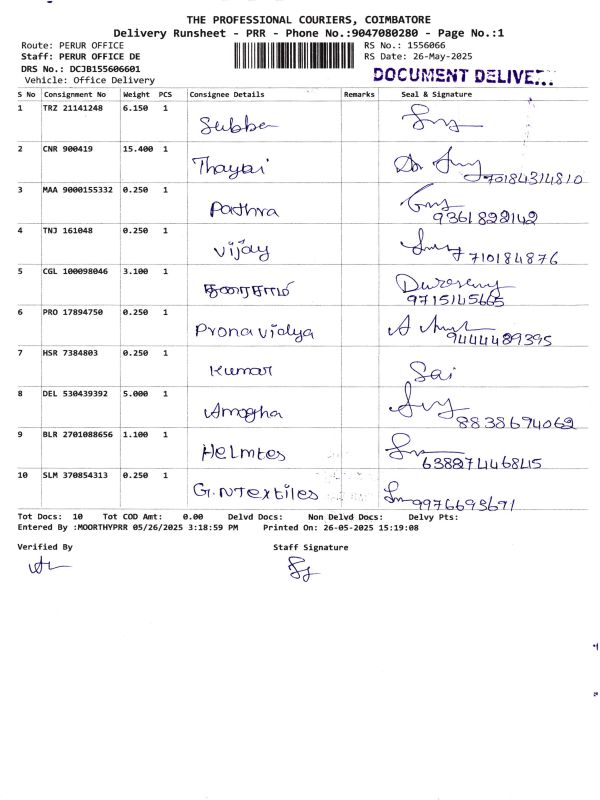 THE PROFESSIONAL COURIERS, COIMBATORE
Delivery Runsheet - PRR - Phone No.:9047080280 - Page No.:1
Route: PERUR OFFICE RS No.: 1556066
Staff: PERUR OFFICE DE RS Date: 26-May-2025
DRS No.: DCJB155606601 DOCUMENT
Vehicle: Office Delivery
S No Consignment No Weight PCS Consignee Details Remarks Seal & Signature
1 TRZ 21141248 6.150 1
Subba
2 CNR 900419 15.400 1
70184314810
3 MAA 9000155332 0.250 1
9361822142
4 TNJ 161048 0.250 1
Vijay 710184876
5 CGL 100098046 3.100 1
9715145665
6 PRO 17894750 0.250 1
Pronavidya 9444489395
7 HSR 7384803 0.250 1
Kumar Sai
8 DEL 530439392 5.000 1
Amogha 8838694062
9 BLR 2701088656 1.100 1
Helmtes
10 SLM 370854313 0.250 1
G.N Textiles 9976693691
Tot Docs: 10 Tot COD Amt: 0.00 Delvd Docs: Non Delvd Docs: Delvy Pts:
Entered By :MOORTHYPRR 05/26/2025 3:18:59 PM Printed On: 26-05-2025 15:19:08
Verified By Staff Signature